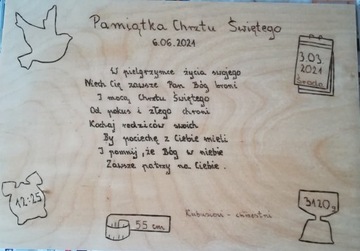 Pamiątka Chrztu Świętego
6.06.2021
W pielgrzymce życia swojego
Niech Cię zawsze Pan Bóg broni
I mocą Chrztu Świętego
Od pokus i złego chroni
Kochaj rodziców swoich
By pociechę z Ciebie mieli
I pomnij, że Bóg w niebie
Zawsze patrzy na Ciebie.
3.03
2021
Środa
12:25
55 cm
Kubusiowi - chrzestni
3120g